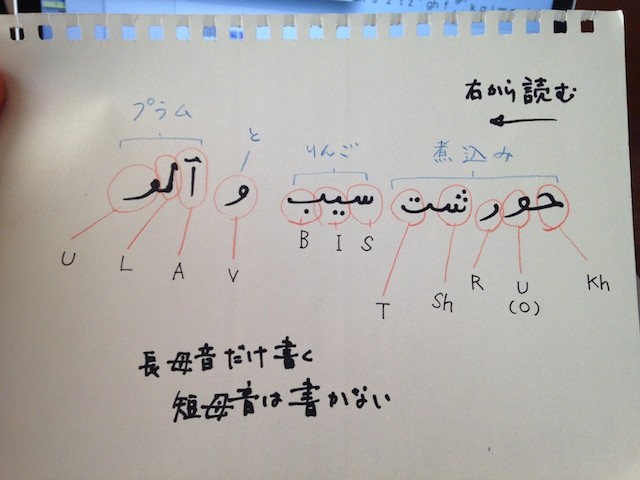 右から読む
←
プラム と りんご 煮込み
حورشت سیب و آلو
U L A V B I S T Sh R U Kh
(O)
長母音だけ書く
短母音は書かない